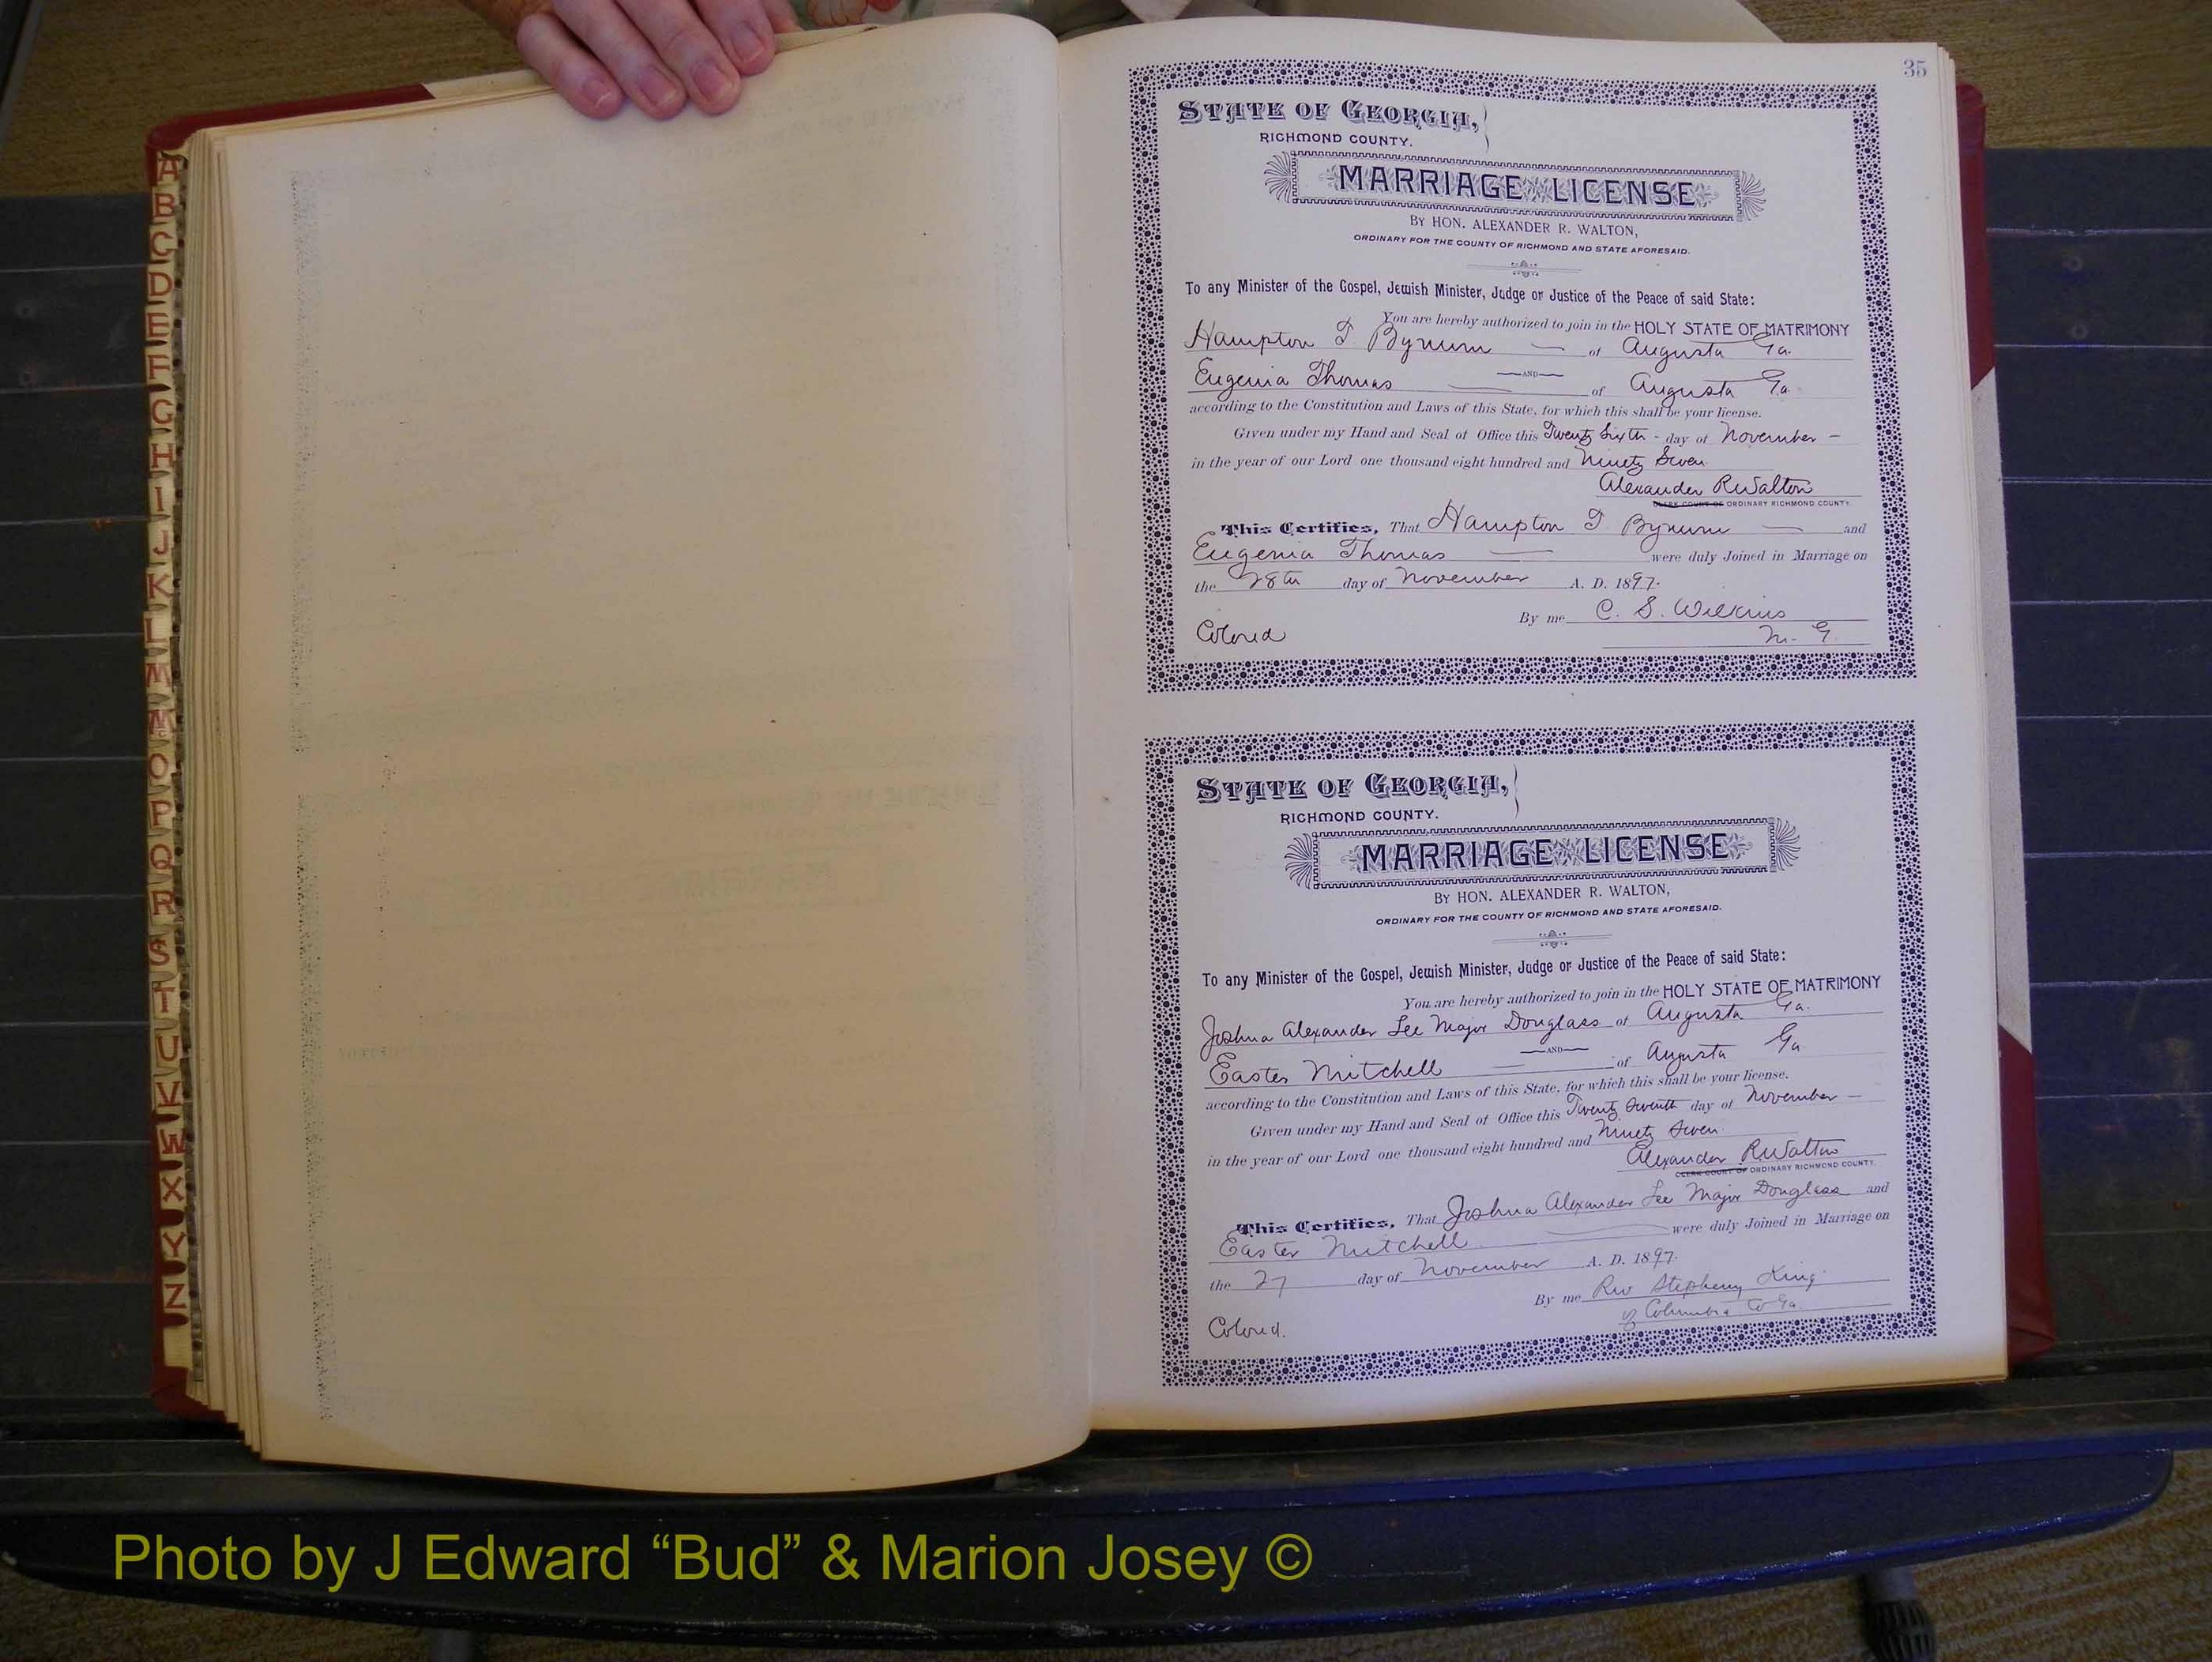 A
B
C
D
E
F
G
H
I
J
K
L
M
Mc
O
P
Q
R
S
T
U
V
W
X
Y
Z
35
STATE OF GEORGIA,
RICHMOND COUNTY.
MARRIAGE LICENSE
BY HON. ALEXANDER R. WALTON,
ORDINARY FOR THE COUNTY OF RICHMOND AND STATE AFORESAID.
To any Minister of the Gospel, Jewish Minister, Judge or Justice of the Peace of said State:
You are hereby authorized to join in the HOLY STATE OF MATRIMONY
Hampton T. Bynum — of Augusta Ga.
—AND—
Eugenia Thomas — of Augusta Ga.
according to the Constitution and Laws of this State, for which this shall be your license.
Given under my Hand and Seal of Office this Twenty Sixth - day of November -
in the year of our Lord one thousand eight hundred and Ninety Seven.
Alexander R Walton
CLERK COURT OF ORDINARY RICHMOND COUNTY.
This Certifies, That Hampton T Bynum — and
Eugenia Thomas — were duly Joined in Marriage on
the 28th day of November A. D. 1897.
By me C. S. Wilkins
M. G.
Colored
STATE OF GEORGIA,
RICHMOND COUNTY.
MARRIAGE LICENSE
BY HON. ALEXANDER R. WALTON,
ORDINARY FOR THE COUNTY OF RICHMOND AND STATE AFORESAID.
To any Minister of the Gospel, Jewish Minister, Judge or Justice of the Peace of said State:
You are hereby authorized to join in the HOLY STATE OF MATRIMONY
Joshua Alexander Lee Major Douglass of Augusta Ga.
—AND—
Easter Mitchell — of Augusta Ga
according to the Constitution and Laws of this State, for which this shall be your license.
Given under my Hand and Seal of Office this Twenty Seventh day of November —
in the year of our Lord one thousand eight hundred and Ninety Seven.
Alexander R Walton
CLERK COURT OF ORDINARY RICHMOND COUNTY.
This Certifies, That Joshua Alexander Lee Major Douglass and
Easter Mitchell — were duly Joined in Marriage on
the 27 day of November A. D. 1897.
By me Rev Stepheny King
of Columbia Co Ga.
Colored.
Photo by J Edward “Bud” & Marion Josey ©